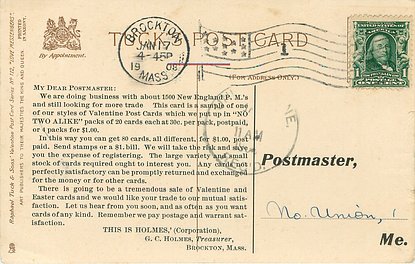 TUCK'S POST CARD
By Appointment.
BROCKTON
JAN 17
4-45P
1908
MASS.
1
(FOR ADDRESS ONLY.)
Raphael Tuck & Sons' Valentine Post Card Series No. 112, "LOVE MESSENGERS."
ART PUBLISHERS TO THEIR MAJESTIES THE KING AND QUEEN
MY DEAR POSTMASTER:
We are doing business with about 1500 New England P. M.'s
and still looking for more trade This card is a sample of one
of our styles of Valentine Post Cards which we put up in "NO
TWO ALIKE" packs of 20 cards each at 30c. per pack, postpaid,
or 4 packs for $1.00.
In this way you can get 80 cards, all different, for $1.00, post
paid. Send stamps or a $1. bill. We will take the risk and save
you the expense of registering. The large variety and small
stock of cards required ought to interest you. Any cards not
perfectly satisfactory can be promptly returned and exchanged
for the money or for other cards.
There is going to be a tremendous sale of Valentine and
Easter cards and we would like your trade to our mutual satis-
faction. Let us hear from you soon, and as often as you want
cards of any kind. Remember we pay postage and warrant sat-
isfaction.
THIS IS HOLMES,' (Corporation)
G. C. HOLMES, Treasurer,
BROCKTON, MASS.
11 AM
Postmaster,
No. Union,
Me.